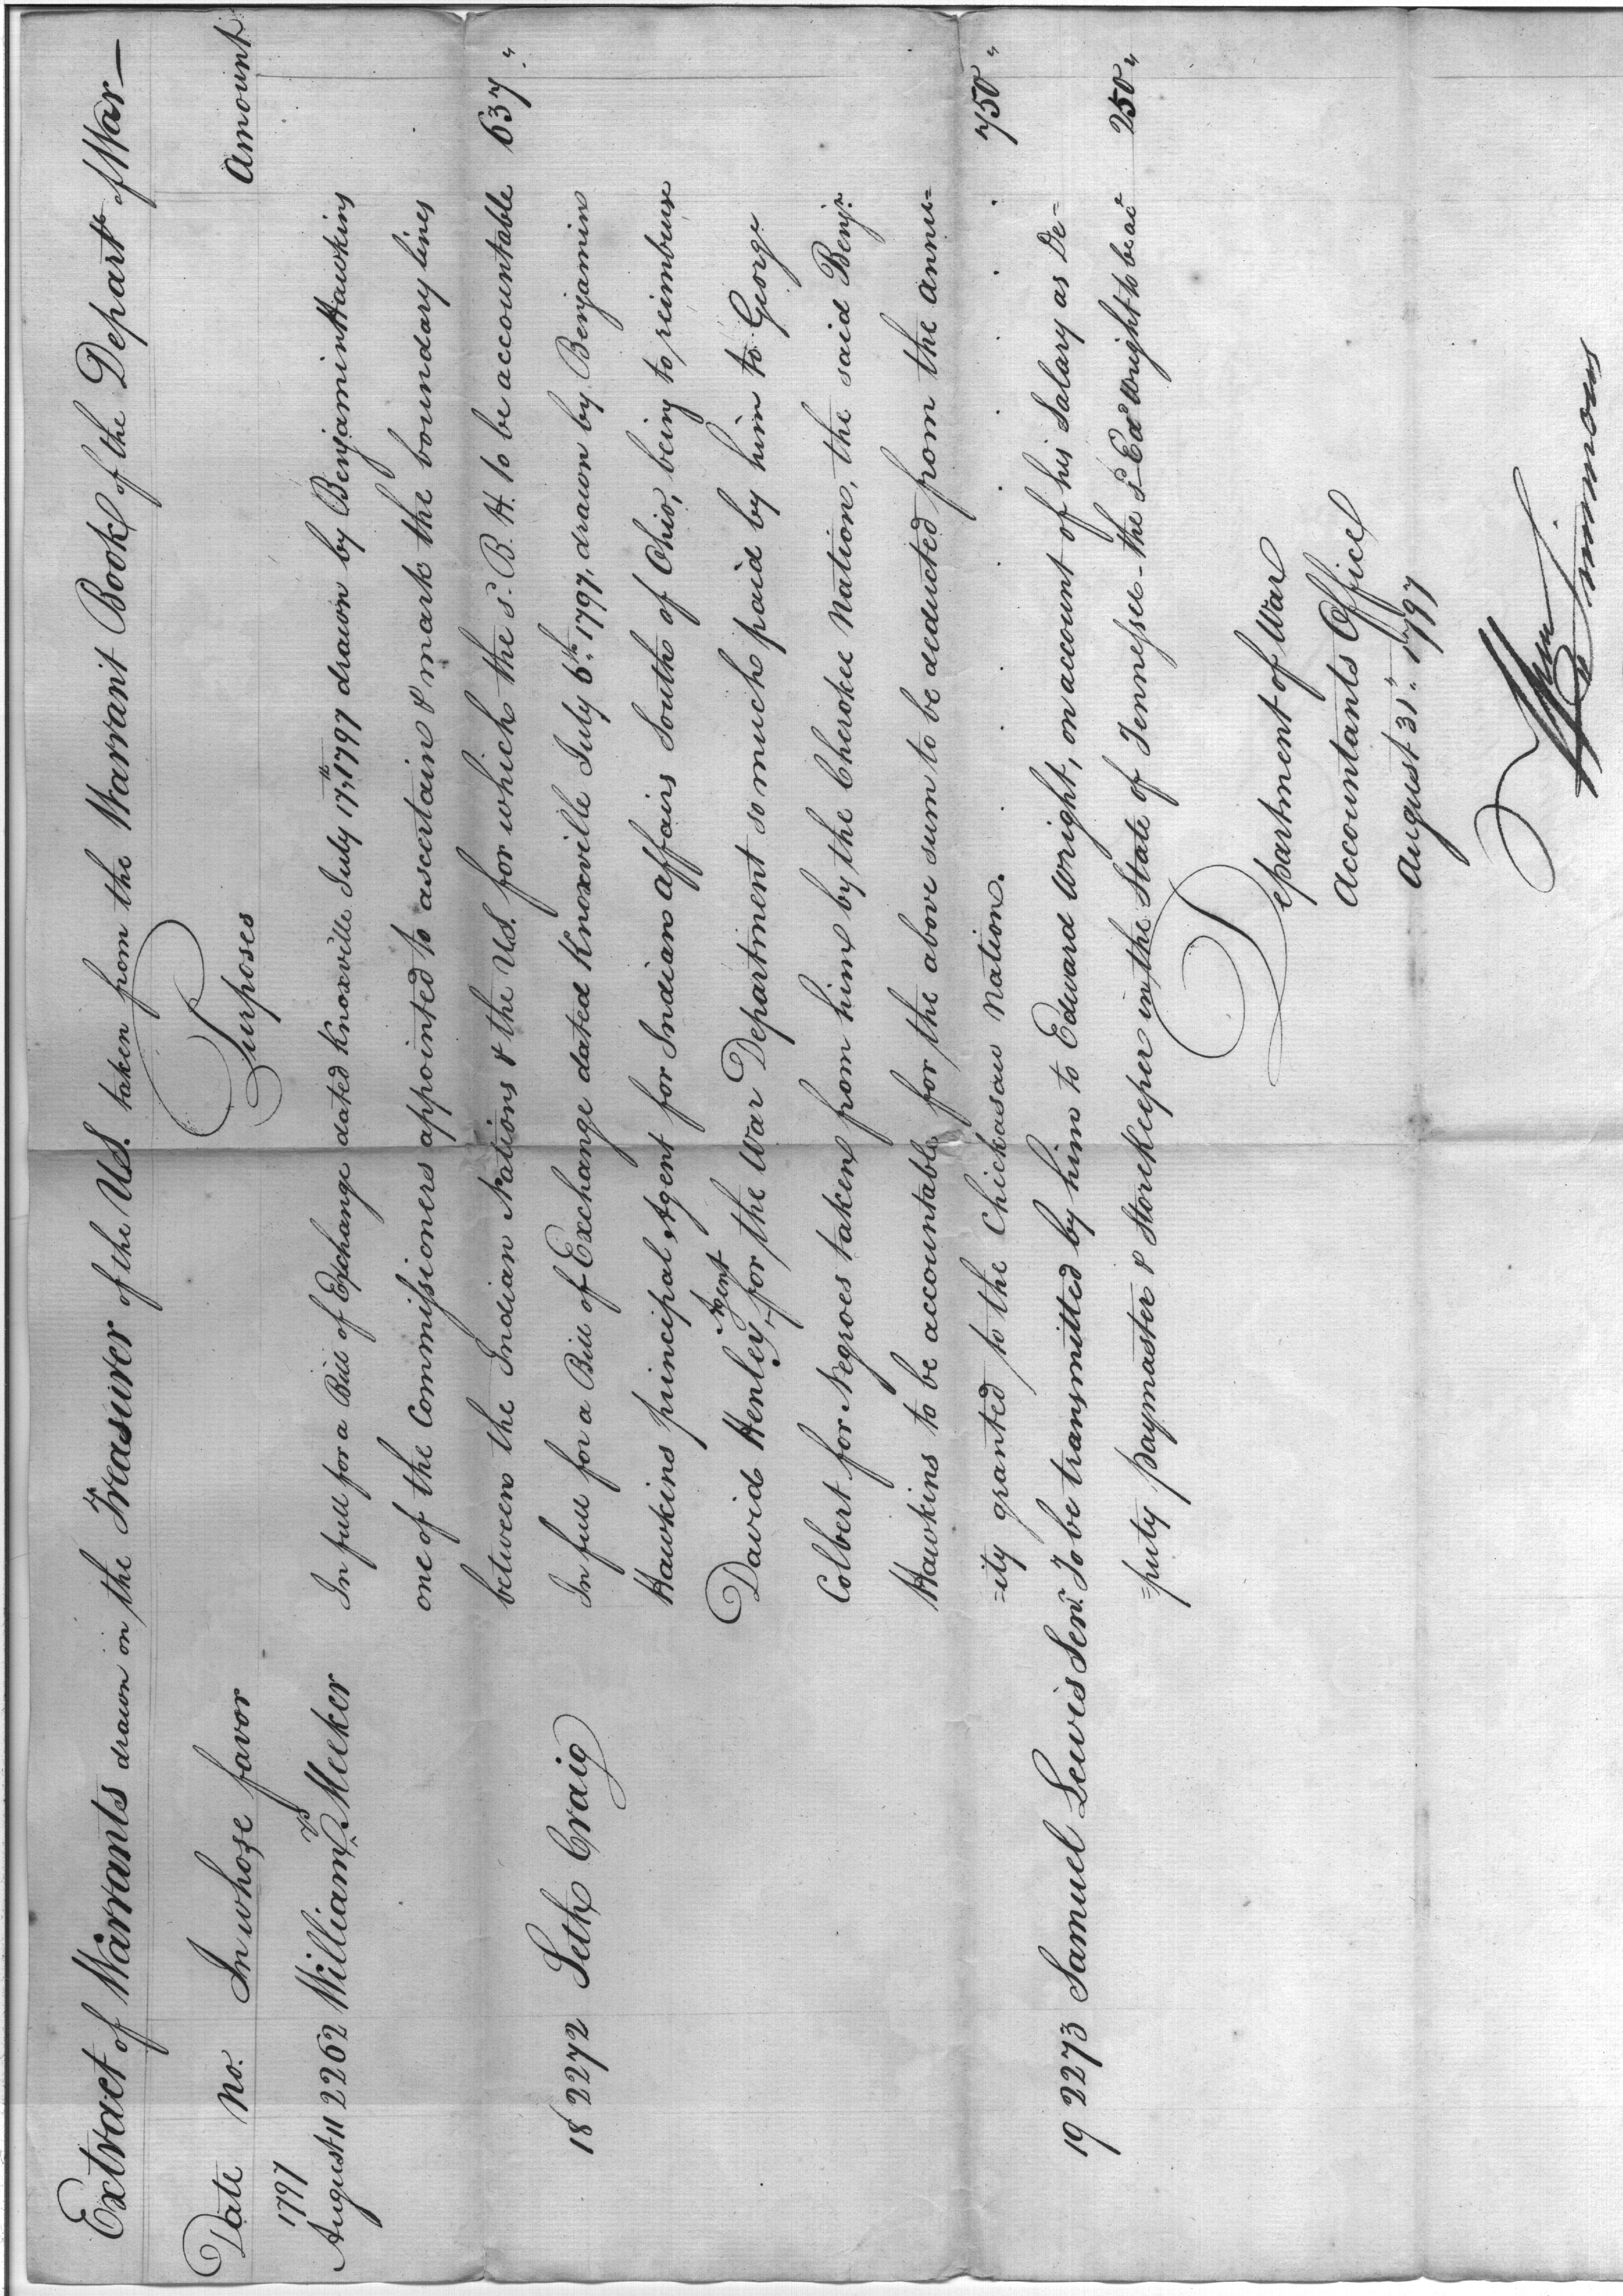 Extract of Warrants drawn on the Treasurer of the U.S. taken from the Warrant Book of the Depart.t of War—
Date No. In whose favor Purposes Amount
1797
August 11 2262 William Meeker In full for a Bill of Exchange dated Knoxville July 17.th 1797 drawn by Benjamin Hawkins
one of the Commissioners appointed to ascertain & mark the boundary lines
between the Indian Nations & the U.S. for which the s.d B. H. to be accountable 637 "
18 2272 Seth Craig In full for a Bill of Exchange dated Knoxville July 6.th 1797, drawn by Benjamin
Hawkins principal Agent for Indian affairs South of Ohio, being to reimburse
David Henley Agent for the War Department so much paid by him to George
Colbert for Negroes taken from him by the Cherokee Nation, the said Benj.n
Hawkins to be accountable for the above sum to be deducted from the annu=
=ity granted to the Chickasaw Nation. . . . . . . . . 750 "
19 2273 Samuel Lewis Sen.r To be transmitted by him to Edward Wright, on account of his Salary as De=
=puty paymaster & Storekeeper in the State of Tennessee - the s.d Ed.d Wright to be acc 250 "
Department of War
Accountants Office
August 31.st 1797
Wm Simmons